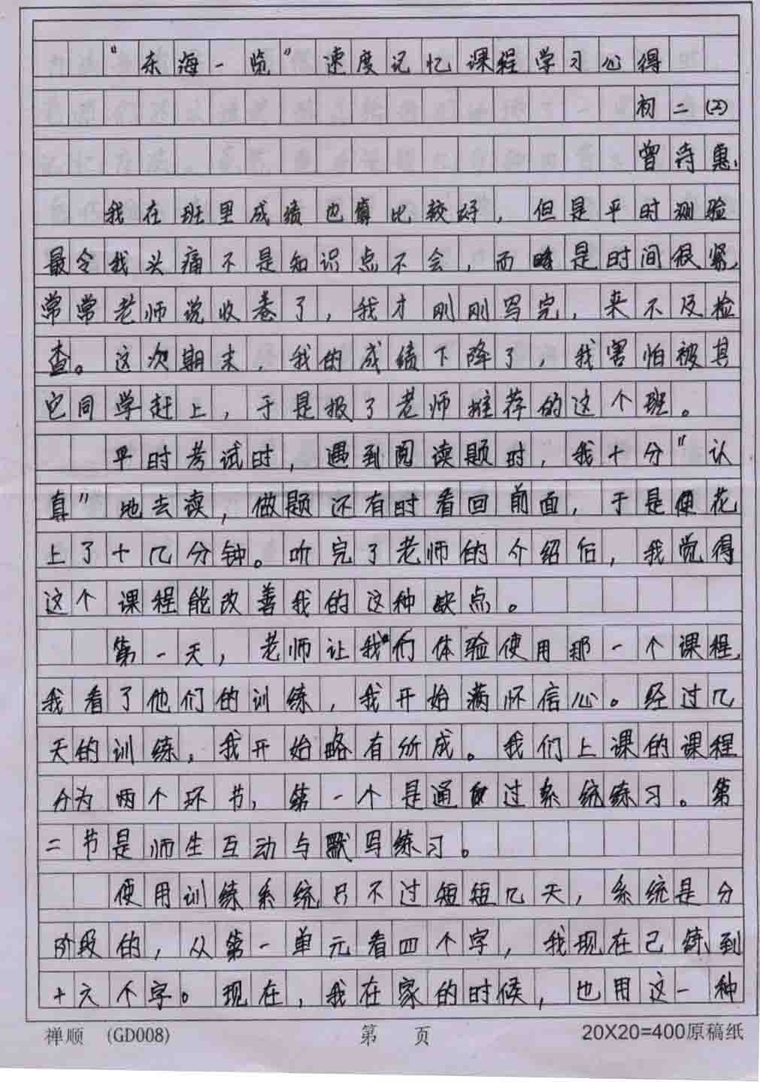 “东海一览”速度记忆课程学习心得
初二(2)
曾诗惠
我在班里成绩也算比较好，但是平时测验
最令我头痛不是知识点不会，而是时间很紧，
常常老师说收卷了，我才刚刚写完，来不及检
查。这次期末，我的成绩下降了，我害怕被其
它同学赶上，于是报了老师推荐的这个班。
平时考试时，遇到阅读题时，我十分“认
真”地去读，做题还有时看回前面，于是便花
上了十几分钟。听完了老师的介绍后，我觉得
这个课程能改善我的这种缺点。
第一天，老师让我们体验使用那一个课程，
我看了他们的训练，我开始满怀信心。经过几
天的训练，我开始略有所成。我们上课的课程
分为两个环节，第一个是通过系统练习。第
二节是师生互动与默写练习。
使用训练系统只不过短短几天，系统是分
阶段的，从第一单元看四个字，我现在已练到
十六个字。现在，我在家的时候，也用这一种
禅顺 (GD008) 第 页 20X20=400原稿纸